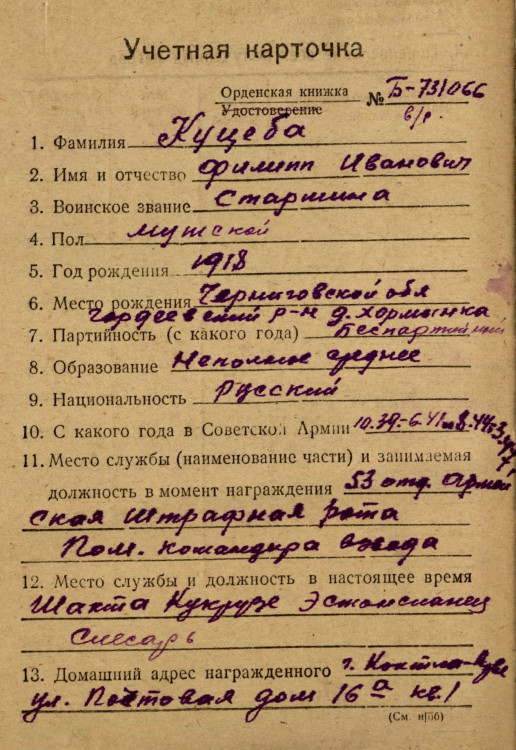 Учетная карточка
Орденская книжка
Удостоверение № Б-731066
в/р.
1. Фамилия Куцеба
2. Имя и отчество Филипп Иванович
3. Воинское звание Старшина
4. Пол мужской
5. Год рождения 1918
6. Место рождения Черниговской обл
Гордеевский р-н д. Хормынка
7. Партийность (с какого года) Беспартийный
8. Образование Неполное среднее
9. Национальность Русский
10. С какого года в Советской Армии 10.39-6.41
11. Место службы (наименование части) и занимаемая
должность в момент награждения 53 отд. Армей
ская штрафная рота
Пом. командира взвода
12. Место службы и должность в настоящее время
Шахта Кукрузе Эстонсланец
Слесарь
13. Домашний адрес награжденного г. Кохтла-
ул. Почтовая дом 16а кв. 1
(См. н/об)